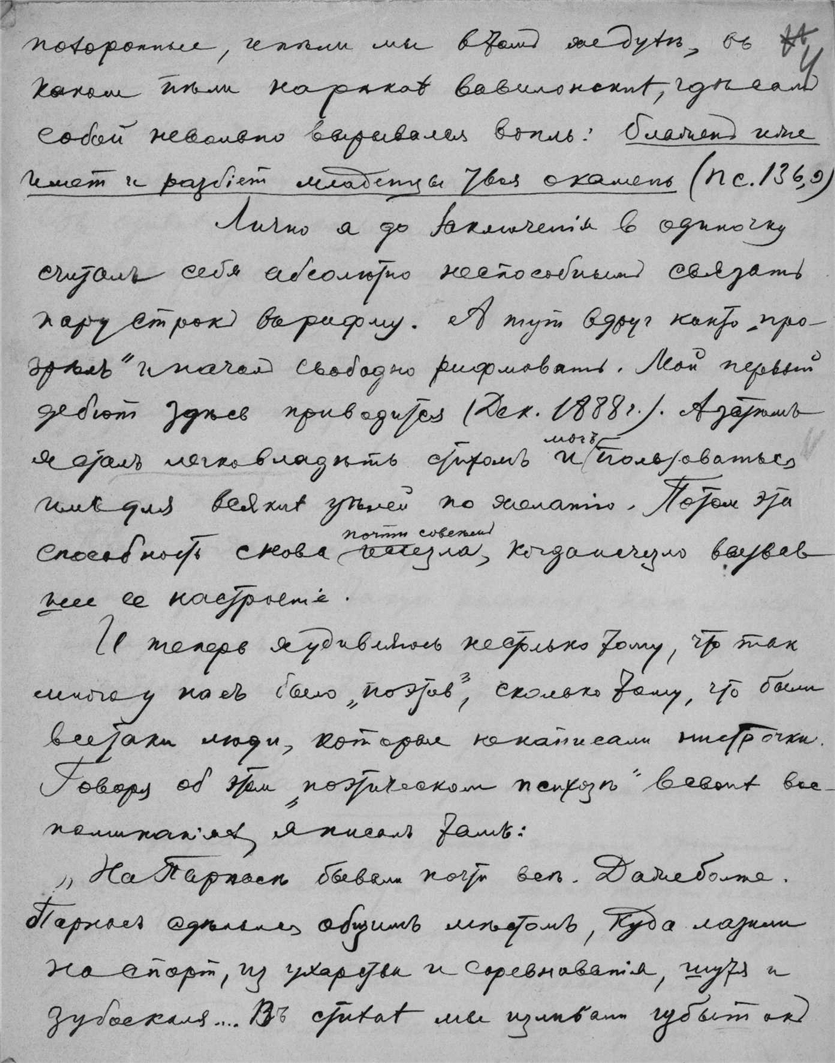 похоронные, и пели мы в том же духѣ, въ 4
каком пѣли на рѣках вавилонских, гдѣ сам
собой невольно вырывался вопль: блажен иже
имет и разбіет младенцы твоя о камень (пс. 136,9)
Лично я до заключенія в одиночку
считалъ себя абсолютно неспособным связать
пару строк в рифму. А тут вдруг как то „про-
зрѣлъ“ и начал свободно рифмовать. Мой первый
дебют здѣсь приводится (Дек. 1888 г.). А затѣмъ
я сталъ легко владѣть стихомъ и могъ пользоваться
имъ для всяких цѣлей по желанію. Потом эта
способность снова почти совсѣм исчезла, когда исчезло вызвав
шее ее настроеніе.
И теперь я удивляюсь не столько тому, что так
много у насъ было „поэтов“, сколько тому, что были
все таки люди, которые не написали ни строчки.
Говоря об этом „поэтическом психозѣ“ в своих вос-
поминаніях, я писалъ тамъ:
„На Парнасѣ бывали почти всѣ. Даже болѣе.
Парнасъ сдѣлался общимъ мѣстомъ, куда лазили
на спорт, из ухарства и соревнованія, шутя и
зубоскаля.... Въ стихах мы изливали